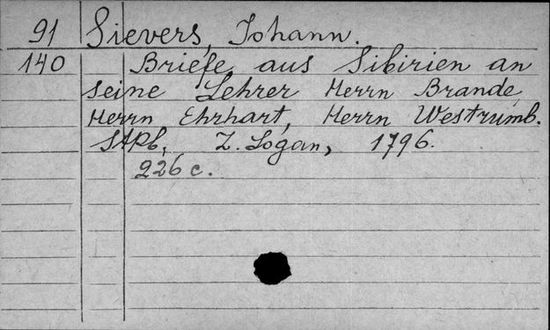 91 Sievers, Johann.
140 Briefe aus Sibirien an
seine Lehrer Herrn Brande,
Herrn Ehrhart, Herrn Westrumb.
StPb, Z. Logan, 1796.
226 c.